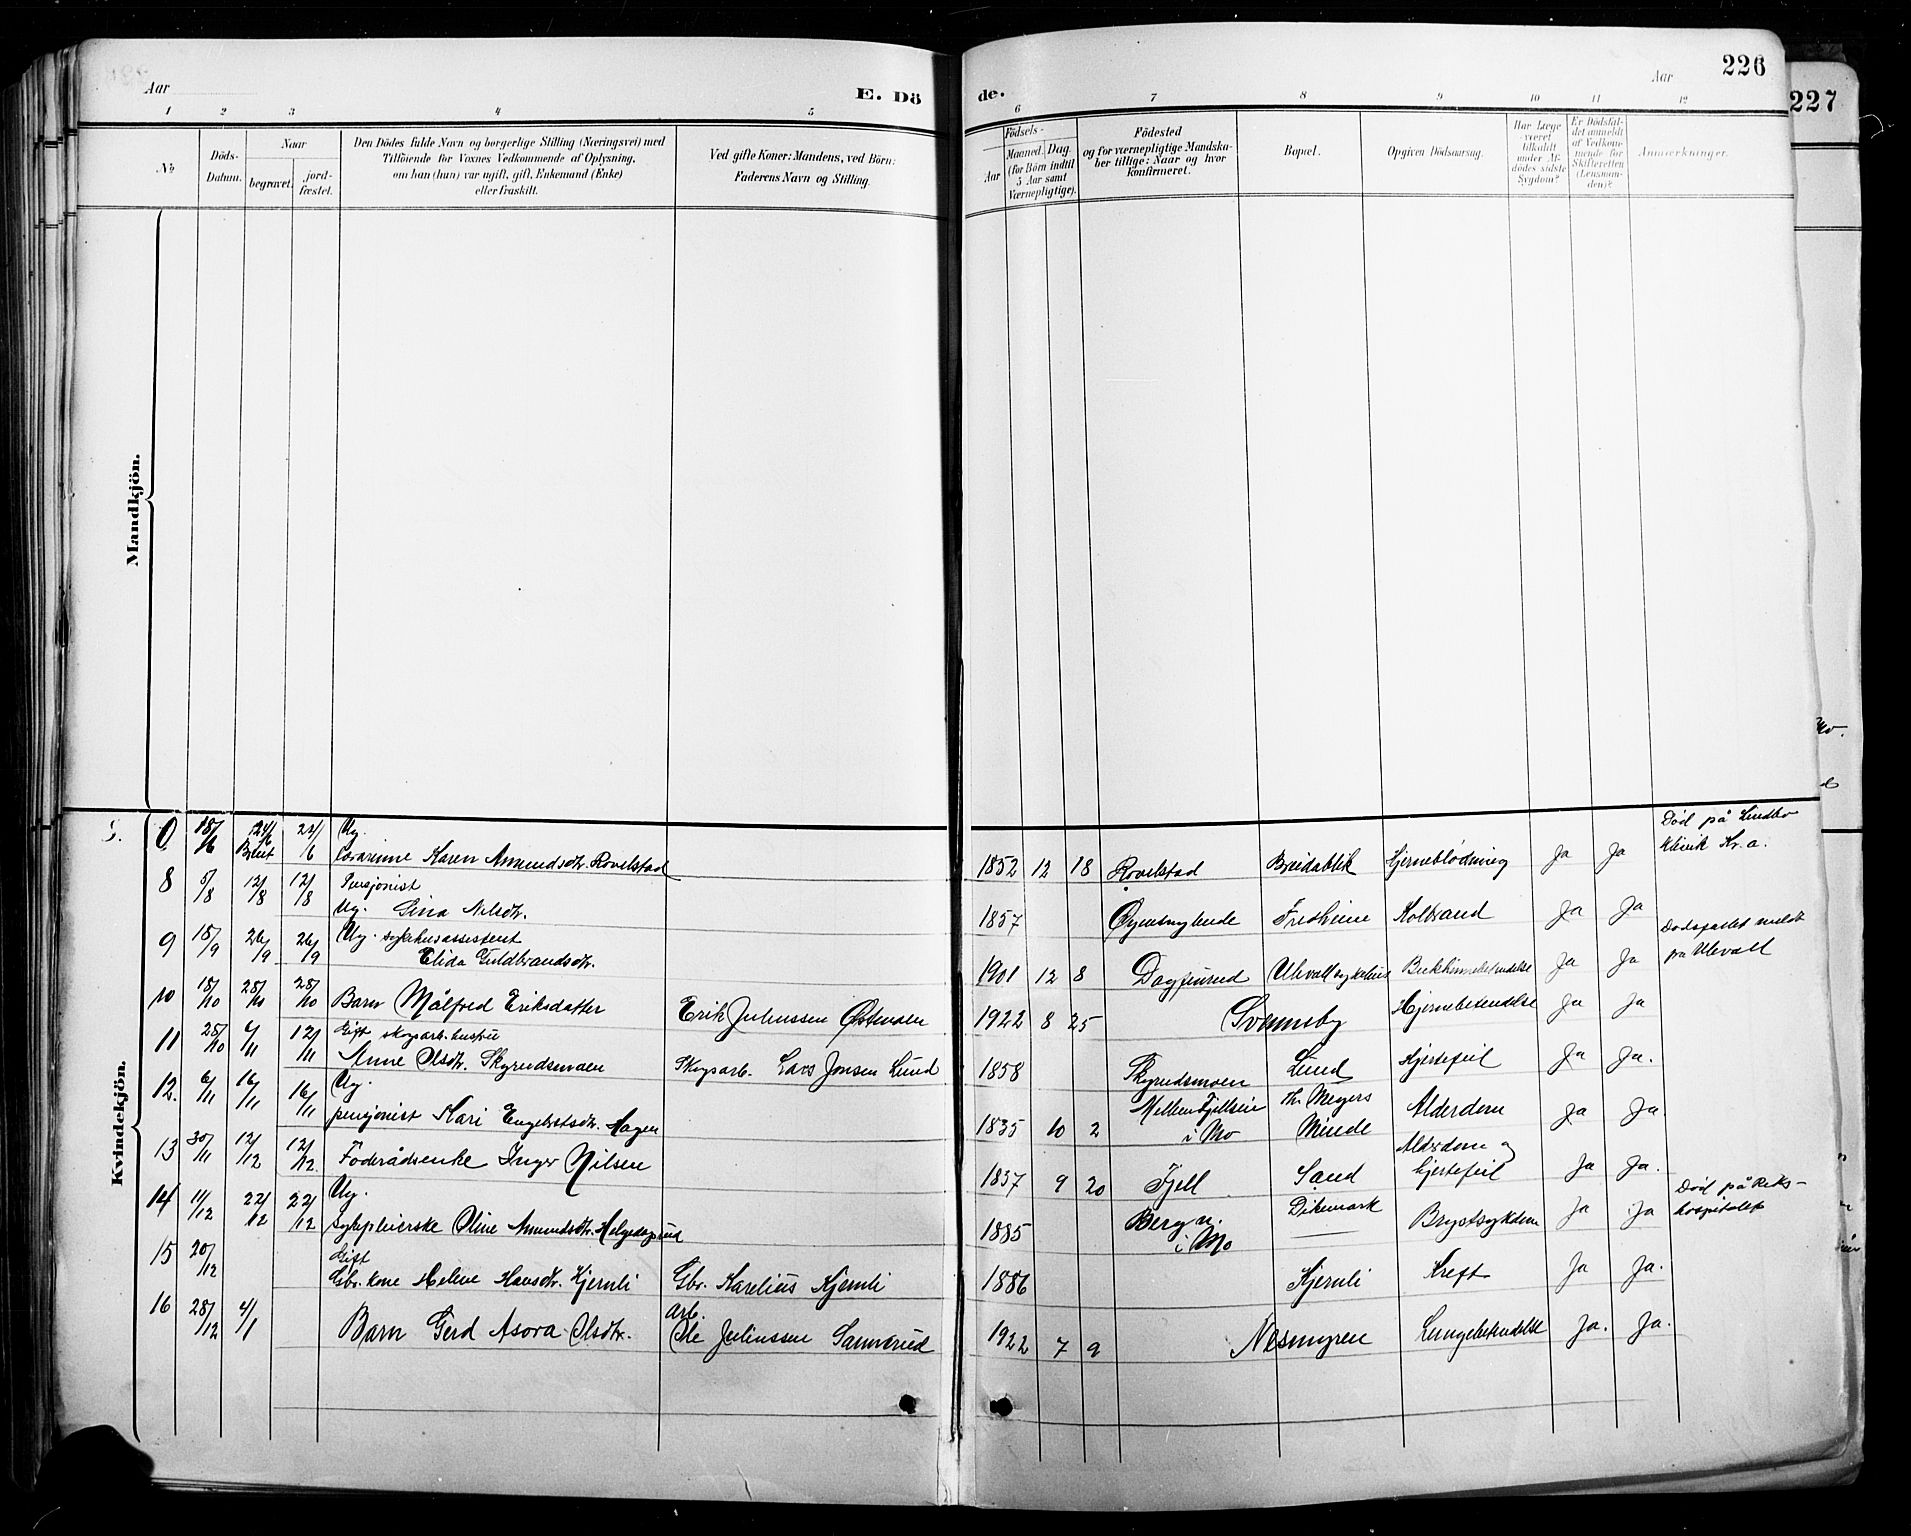 Aar
E. Dö
de.
Aar
226
227
1 2 3 4 5 6 7 8 9 10 11 12
No
Döds-Datum.
Naar
begravet.
jord-fæstet.
Den Dödes fulde Navn og borgerlige Stilling (Næringsvei) med
Tilföiende for Voxnes Vedkommende af Oplysning,
om han (hun) var ugift, gift, Enkemand (Enke)
eller fraskilt.
Ved gifte Koner: Mandens, ved Börn:
Faderens Navn og Stilling.
Födsels-
Aar
Maaned. Dag.
(for Börn indtil
5 Aar samt
Værnepligtige).
Födested
og for værnepligtige Mandska-
ber tillige: Naar og hvor
konfirmeret.
Bopæl.
Opgiven Dödsaarsag.
Har Læge
været
tilkaldt
under Af-
dödes sidste
Sygdom?
Er Dödsfal-
det anmeldt
af Vedkom-
mende for
Skifteretten
(Lensman-
den)?
Anmærkninger.
Mandkjön.
Kvindekjön.
18/6 24/6 Ug. Død på
Lærarinne Karen Amundsdtr. Rovelstad 1852 12 18 Rovelstad Breidablik Hjerneblödning Ja Ja Klinik Kr.a.
8 5/8 12/8 12/8 Pensjonist
Ug. Lina Nilsdtr. 1857 Fredheim Kolbrand Ja Ja
9 18/9 26/9 26/9 Ug. sykehusassistent Dødsfallet meldt
Elida Guldbrandsdtr. 1901 12 8 Dagfinrud Ullevall sykehus Ja Ja fra Ulevall
10 18/10 28/10 28/10 Barn Målfred Eriksdatter Erik Juliussen Østmoen 1922 8 25 Svennsby Hjernebetendelse Ja Ja
11 25/10 12/11 Gift skogsarb. hustru
Anne Olsdtr. Skyrudsmoen Skogsarb. Lars Jonsen Lund 1858 Skyrudsmoen Lund Hjertefeil Ja Ja.
12. 6/11 16/11 16/11 Ug. Th. Meyers
pensjonist Kari Engebretsdtr. Hagen 1835 10 2 i Mo Minde Alderdom Ja Ja.
13 30/11 12/12 12/12 Alderdom og
Föderådsenke Inger Nilsen 1837 9 20 Fjell Sand hjertefeil Ja Ja.
14 14/12 22/12 22/12 Ug. Dikemark Død på Riks-
sykepleierske Oline Amundsdtr. Helgedagsrud 1885 Berg n. i Mo Brystsykdom Ja Ja hospitalet
15 20/12 Gift
Gbr. kone Helene Hansdtr. Kjernli Gbr. Karelius Kjernli 1886 Kjernli Kreft Ja Ja.
16 28/12 4/1 Arb.
Barn Gerd Asora Olsdtr. Ole Juliussen Sannerud 1922 7 9 Nesmyren Lungebetendelse Ja. Ja.